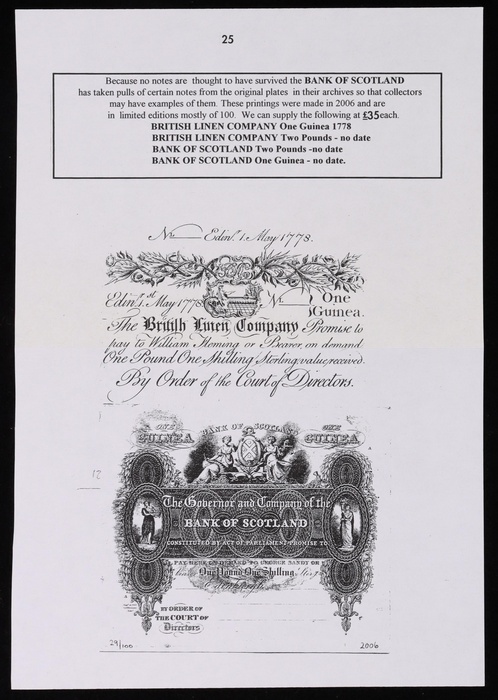 25
Because no notes are thought to have survived the BANK OF SCOTLAND
has taken pulls of certain notes from the original plates in their archives so that collectors
may have examples of them. These printings were made in 2006 and are
in limited editions mostly of 100. We can supply the following at £35each.
BRITISH LINEN COMPANY One Guinea 1778
BRITISH LINEN COMPANY Two Pounds - no date
BANK OF SCOTLAND Two Pounds -no date
BANK OF SCOTLAND One Guinea - no date.
No Edinr. 1. May 1778.
Edinr. 1.st May 1778 No One
Guinea.
The British Linen Company Promise to
pay to William Fleming or Bearer, on demand
One Pound One Shilling Sterling value received.
By Order of the Court of Directors.
ONE BANK OF SCOTLAND ONE
GUINEA GUINEA
The Governor and Company of the
BANK OF SCOTLAND
CONSTITUTED BY ACT OF PARLIAMENT PROMISE TO
PAY HERE ON DEMAND TO GEORGE SANDY OR
One Pound One Shilling
BY ORDER OF
THE COURT OF
Directors
29/100 2006